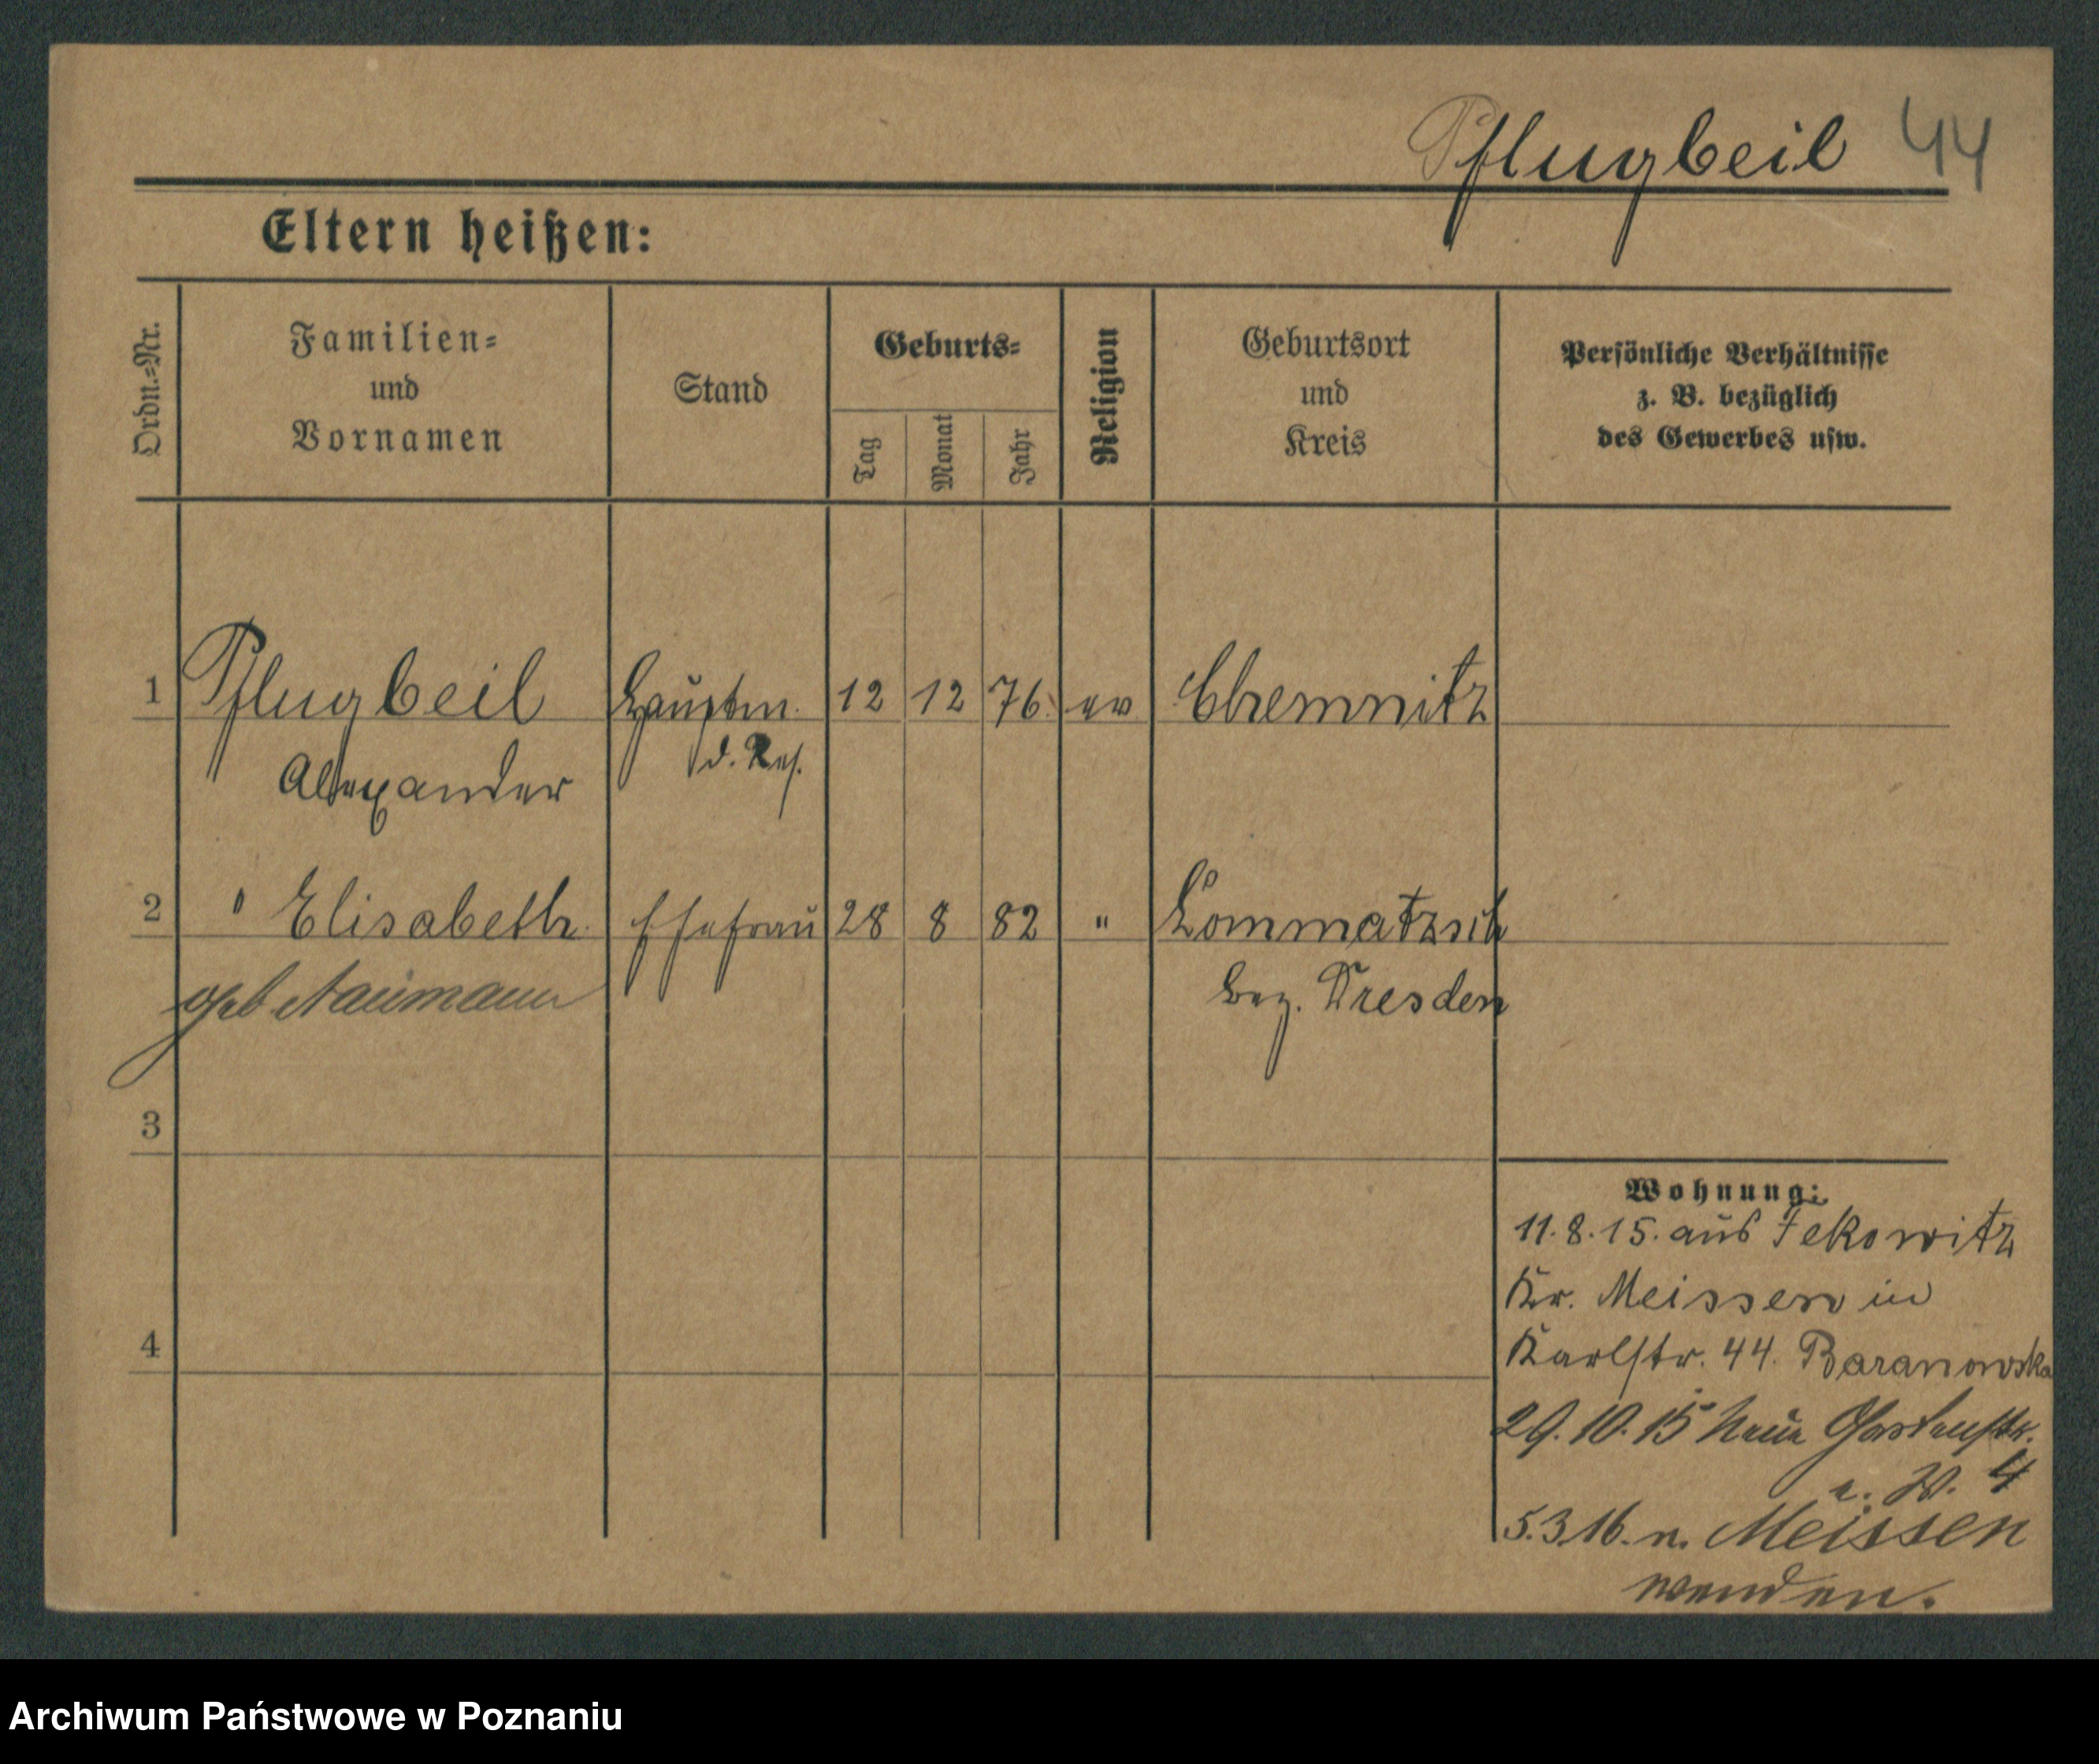 Pflugbeil 44
Eltern heißen:
Ordn.-Nr.
Familien-
und
Vornamen
Stand
Geburts-
Tag
Monat
Jahr
Religion
Geburtsort
und
Kreis
Persönliche Verhältnisse
z. B. bezüglich
des Gewerbes usw.
1 Pflugbeil Hauptm. 12 12 76. ev Chemnitz
Alexander d. Res.
2 " Elisabeth Ehefrau 28 8 82 " Lommatzsch
geb Naumann Bez. Dresden
3
4
Wohnung:
11.8.15. aus Jekowitz
Kr. Meissen in
Karlstr. 44. Baranowska
29.10.15 Neue Gartenstr.
4
5.3.16. n. Meissen
wenden.
Archiwum Państwowe w Poznaniu